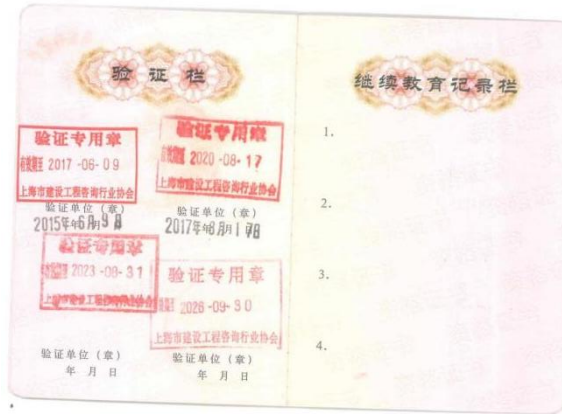 验证栏
验证专用章
有效期至 2017-06-09
上海市建设工程咨询行业协会
验证单位（章）
2015年6月9日
验证专用章
有效期至 2020-08-17
上海市建设工程咨询行业协会
验证单位（章）
2017年8月17日
验证专用章
有效期至 2023-08-31
上海市建设工程咨询行业协会
验证单位（章）
年 月 日
验证专用章
有效期至 2026-09-30
上海市建设工程咨询行业协会
验证单位（章）
年 月 日
继续教育记录栏
1.
2.
3.
4.